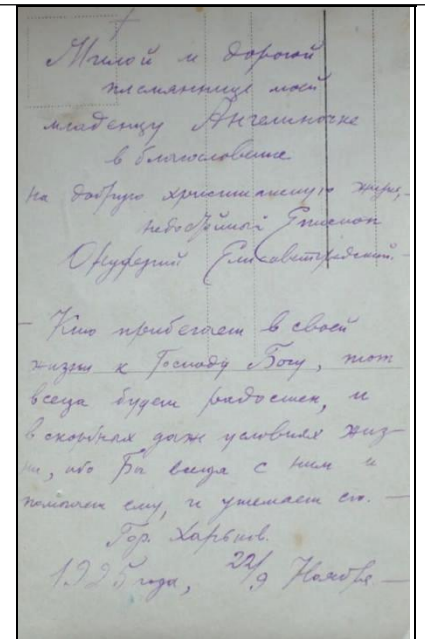 Милой и дорогой
племяннице моей
младенцу Ангелиночке
в благословение
на добрую христианскую жизнь,
недостойный Епископ
Онуфрий Елисаветградский.
Кто прибегает в своей
жизни к Господу Богу, тот
всегда будет радостен, и
в скорбных даже условиях жиз-
ни, ибо Бог всегда с ним и
помогает ему, и утешает его.
Гор. Харьков.
1925 года, 22/9 Ноября